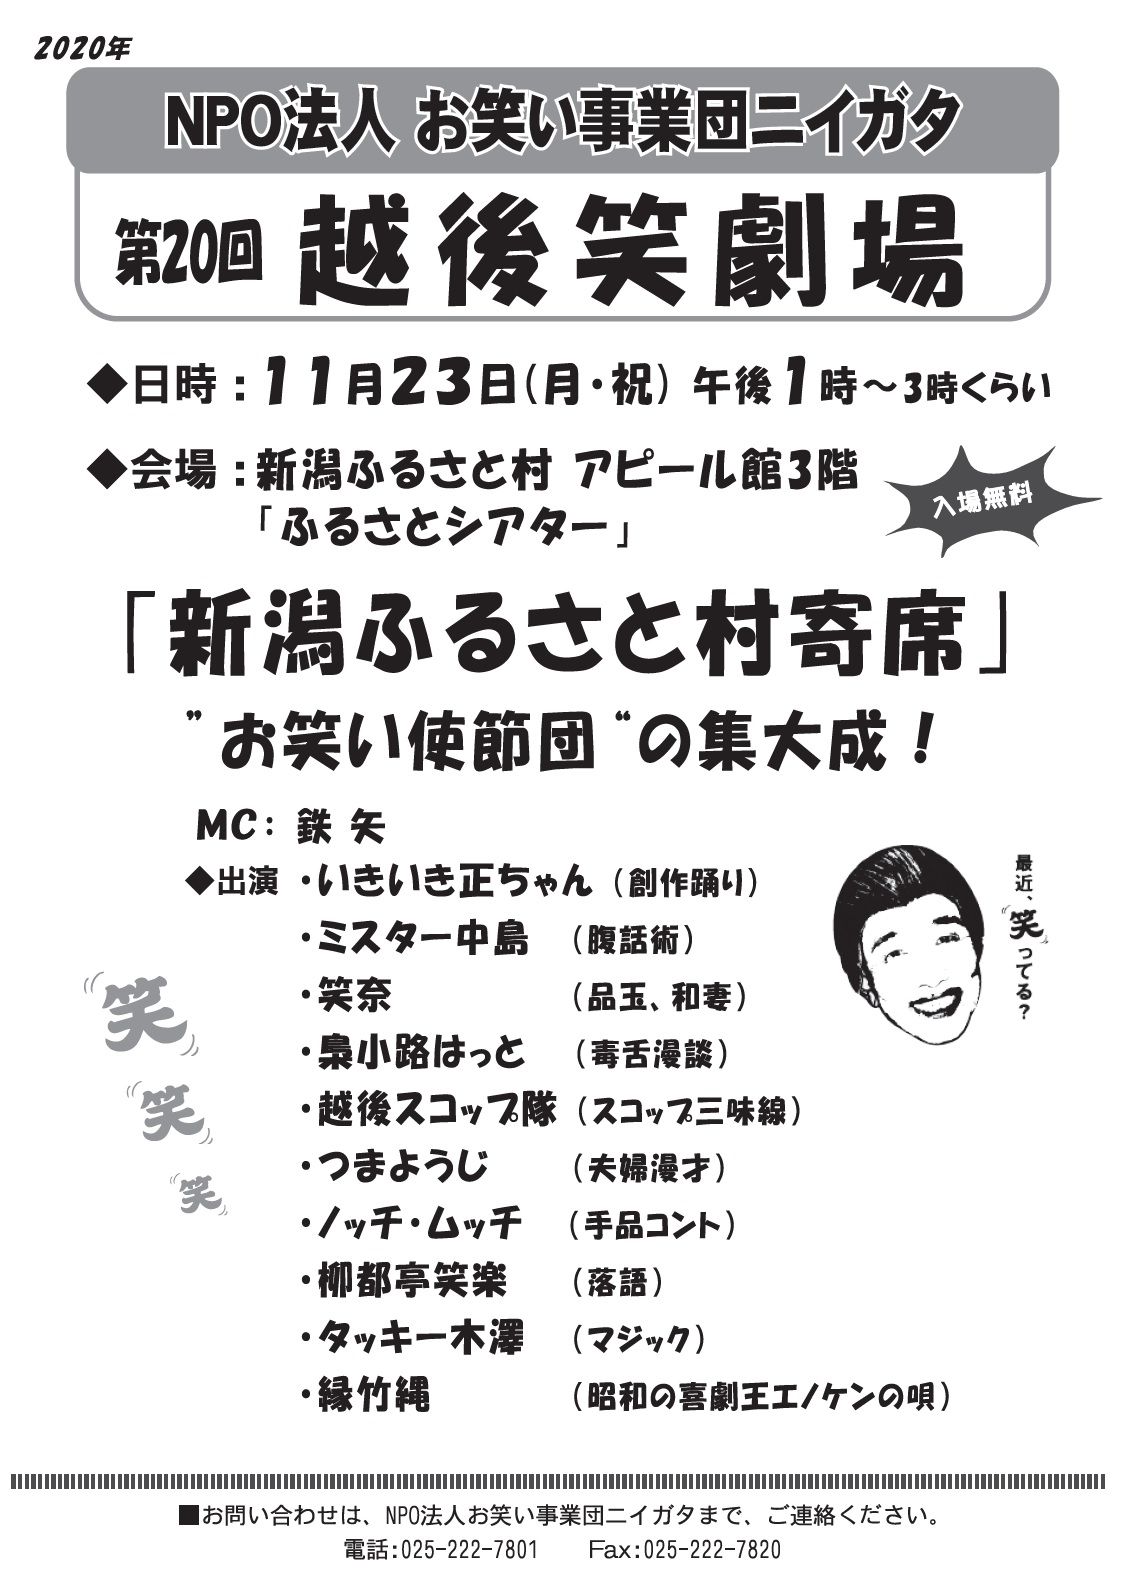 2020年
NPO法人 お笑い事業団ニイガタ
第20回 越後笑劇場
◆日時：11月23日(月・祝) 午後1時～3時くらい
◆会場：新潟ふるさと村 アピール館3階
「ふるさとシアター」
入場無料
「新潟ふるさと村寄席」
”お笑い使節団“の集大成！
MC： 鉄 矢
◆出演 ・いきいき正ちゃん（創作踊り）
・ミスター中島 （腹話術）
・笑奈 （品玉、和妻）
・梟小路はっと （毒舌漫談）
・越後スコップ隊（スコップ三味線）
・つまようじ （夫婦漫才）
・ノッチ・ムッチ （手品コント）
・柳都亭笑楽 （落語）
・タッキー木澤 （マジック）
・縁竹縄 （昭和の喜劇王エノケンの唄）
最近、笑ってる？
笑
笑
笑
■お問い合わせは、NPO法人お笑い事業団ニイガタまで、ご連絡ください。
電話：025-222-7801 Fax：025-222-7820